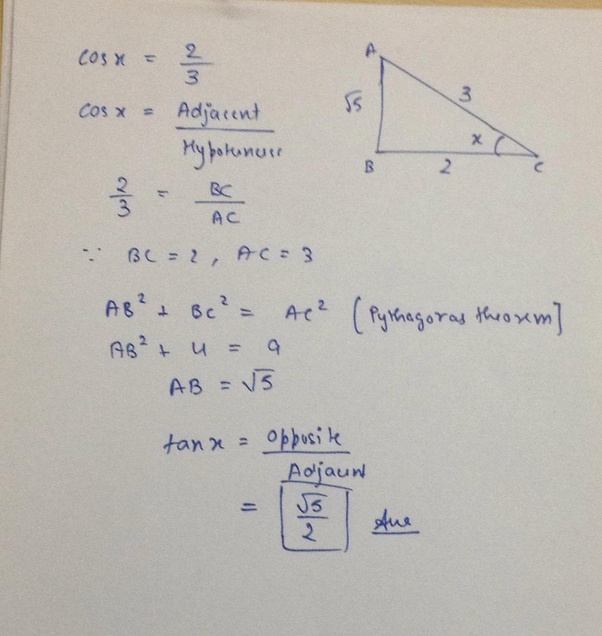 cos x = 2/3
cos x = Adjacent / Hypotenuse
2/3 = BC / AC
∵ BC = 2, AC = 3
AB² + BC² = AC² [Pythagoras theorem]
AB² + 4 = 9
AB = √5
tan x = opposite / Adjacent
= √5 / 2 Ans
A
√5
3
x
B
2
C